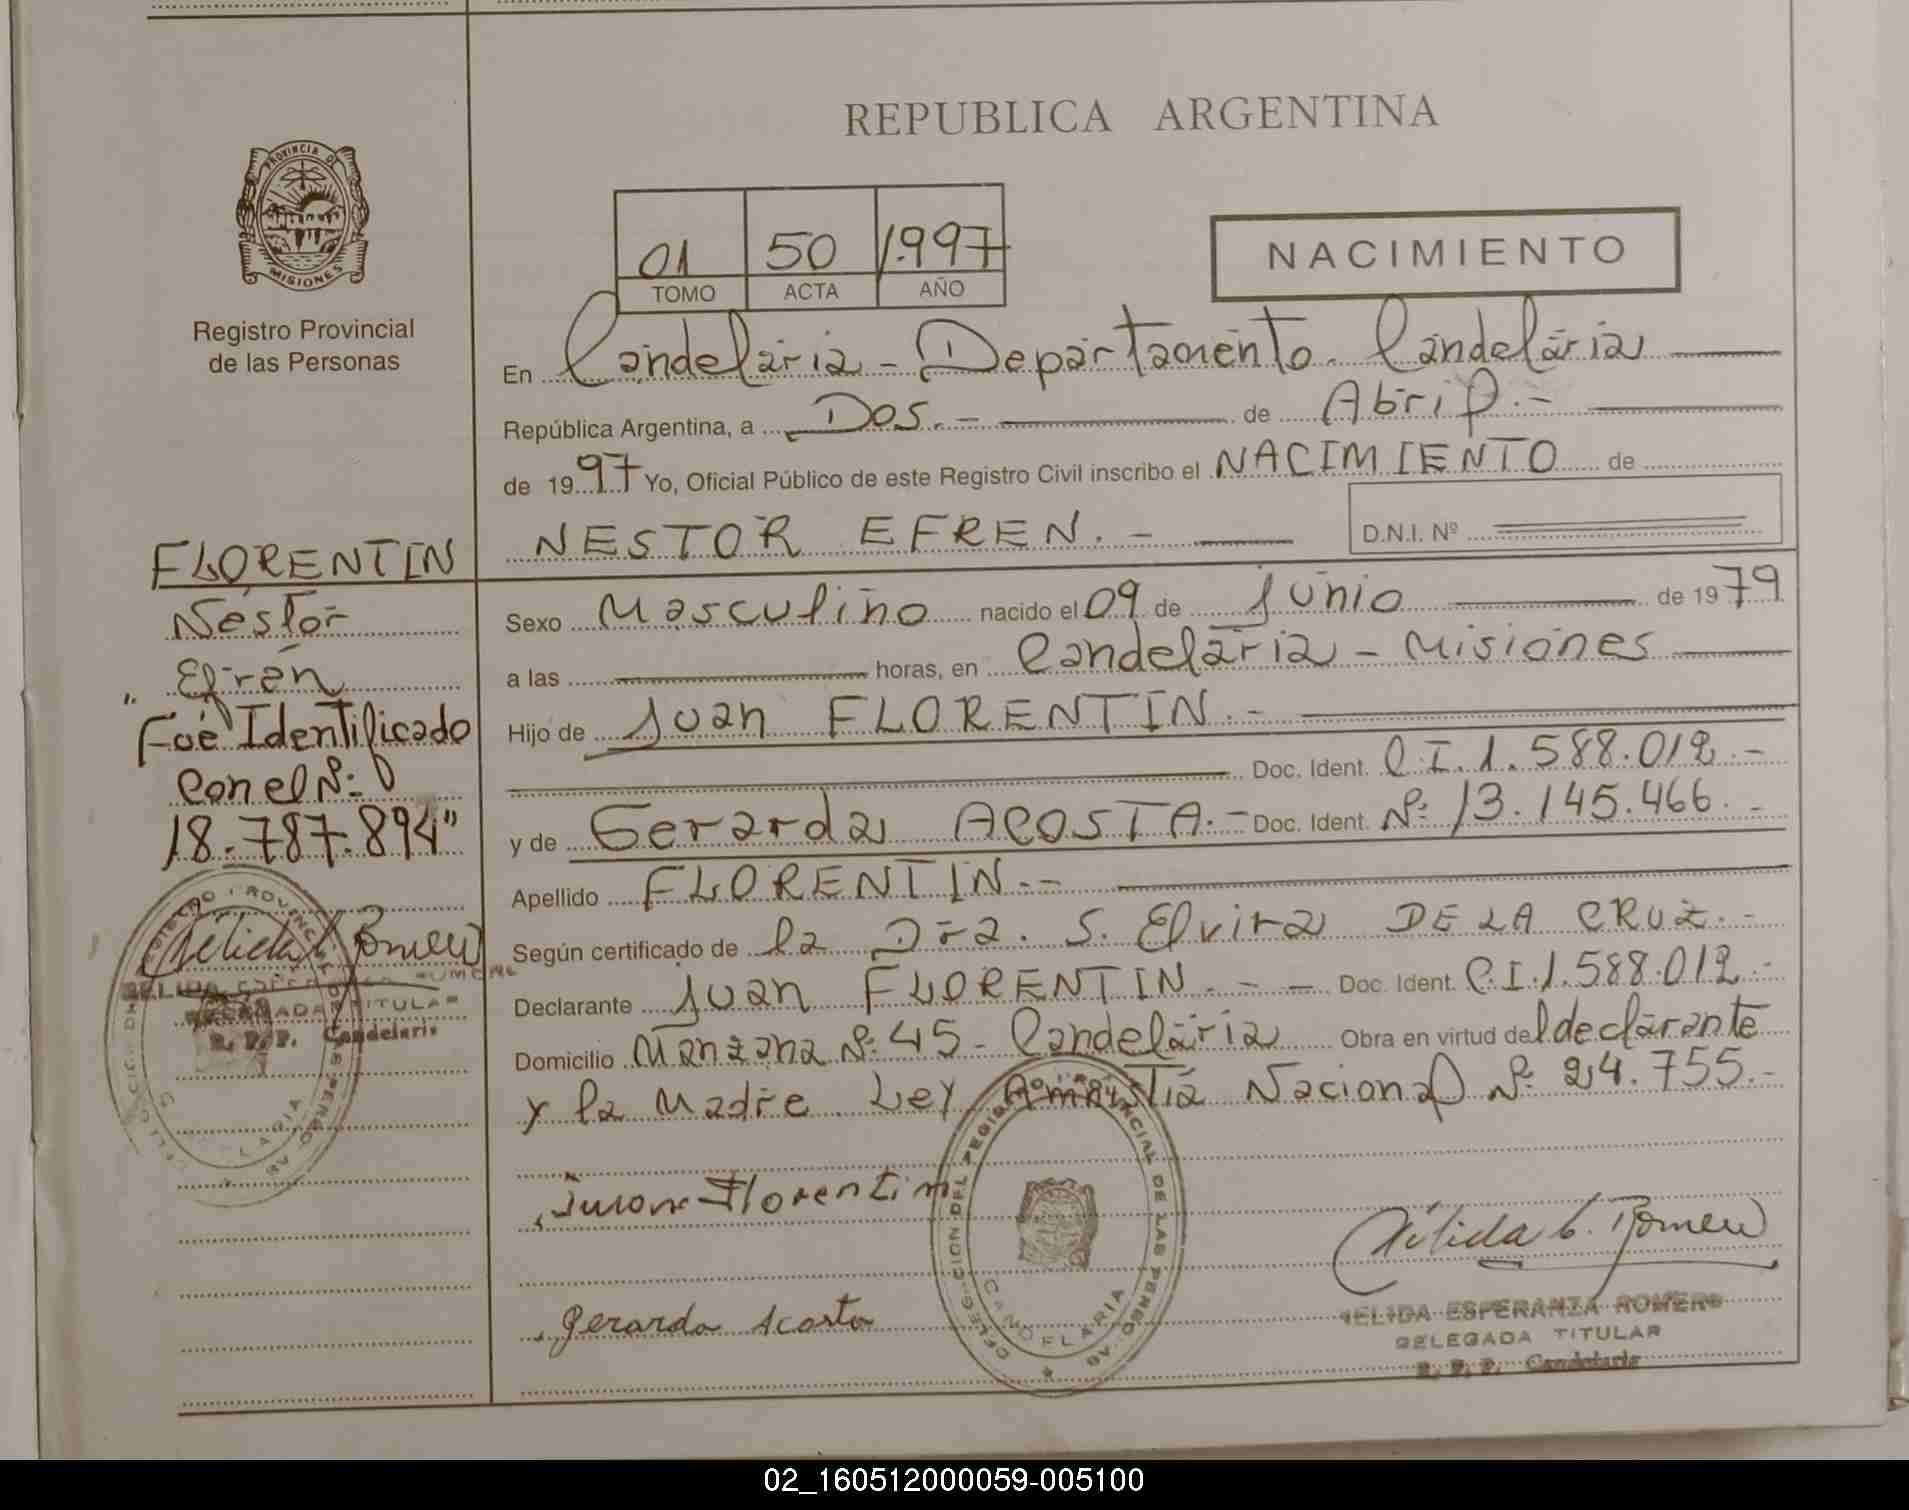 REPUBLICA ARGENTINA
PROVINCIA DE
MISIONES
Registro Provincial
de las Personas
01 50 1.997
TOMO ACTA AÑO
NACIMIENTO
En Candelaria - Departamento Candelaria
República Argentina, a Dos.- de Abril.-
de 1997 Yo, Oficial Público de este Registro Civil inscribo el NACIMIENTO de
NESTOR EFREN.- D.N.I. Nº
FLORENTIN
Nestor
Efrén
"Fué Identificado
Con el Nº:
18.787.894"
Sexo Masculino nacido el 09 de Junio de 1979
a las horas, en Candelaria - Misiones
Hijo de Juan FLORENTIN.-
Doc. Ident. C.I.1.588.012.-
y de Gerarda ACOSTA.- Doc. Ident. Nº 13.145.466.-
Apellido FLORENTIN.-
Según certificado de la Dra. S. Elvira DE LA CRUZ.-
Declarante Juan FLORENTIN.-- Doc. Ident. C.I.1.588.012.-
Domicilio Manzana Nº 45 - Candelaria Obra en virtud del declarante
y la Madre Ley Amnistia Nacional Nº 24.755.-
Juan Florentin
Gerarda Acosta
DELEGACION DEL REGISTRO PROVINCIAL DE LAS PERSONAS
CANDELARIA
Romero
DELEGADA TITULAR
R. P. P. Candelaria
Romero
ELIDA ESPERANZA ROMERO
DELEGADA TITULAR
R. P. P. Candelaria
02_160512000059-005100